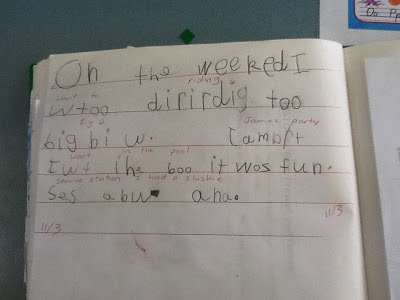 On Pp
On the weeked I
riding
went to
wtoo dirirdig too
Big J James party
big bi w. Iambrt
went in the pool
I wt ihe boo it wos fun.
service station I had a slushie
Ses abu aha.
11/3
11/3